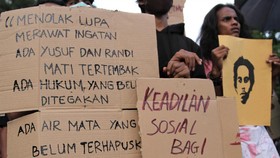 “MENOLAK LUPA
MERAWAT INGATAN
ADA YUSUF DAN RANDI
MATI TERTEMBAK
ADA HUKUM, YANG BELUM
DITEGAKAN
ADA AIR MATA YANG
BELUM TERHAPUSK
KEADILAN
SOSIAL
BAGI